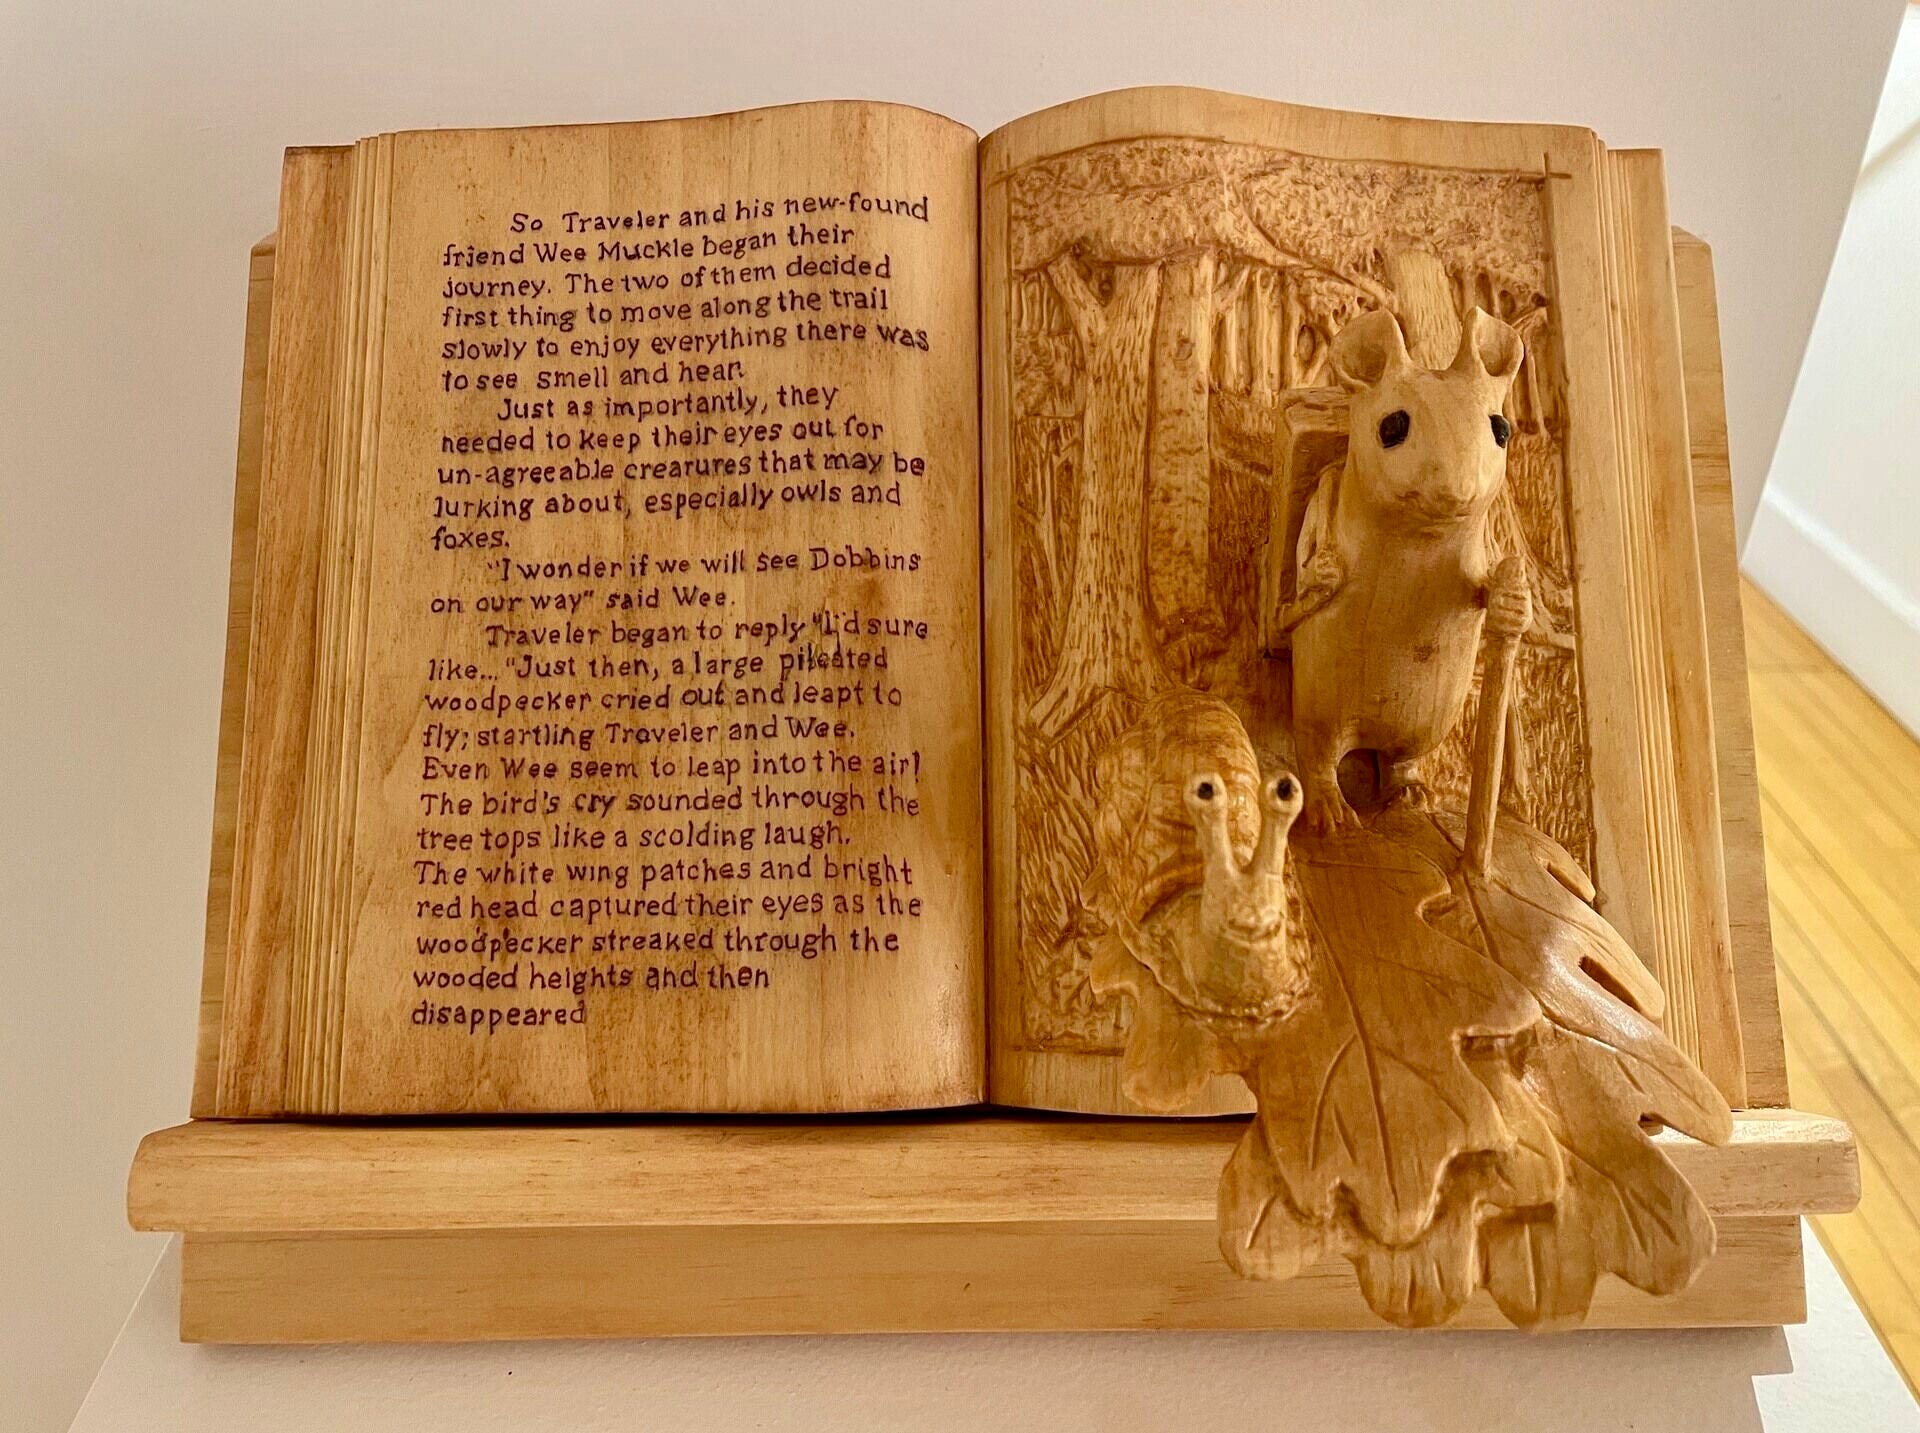 So Traveler and his new-found
friend Wee Muckle began their
journey. The two of them decided
first thing to move along the trail
slowly to enjoy everything there was
to see smell and hear.
Just as importantly, they
needed to keep their eyes out for
un-agreeable crearures that may be
lurking about, especially owls and
foxes.
"I wonder if we will see Dobbins
on our way" said Wee.
Traveler began to reply "I'd sure
like... "Just then, a large pileated
woodpecker cried out and leapt to
fly; startling Traveler and Wee.
Even Wee seem to leap into the air!
The bird's cry sounded through the
tree tops like a scolding laugh.
The white wing patches and bright
red head captured their eyes as the
woodpecker streaked through the
wooded heights and then
disappeared